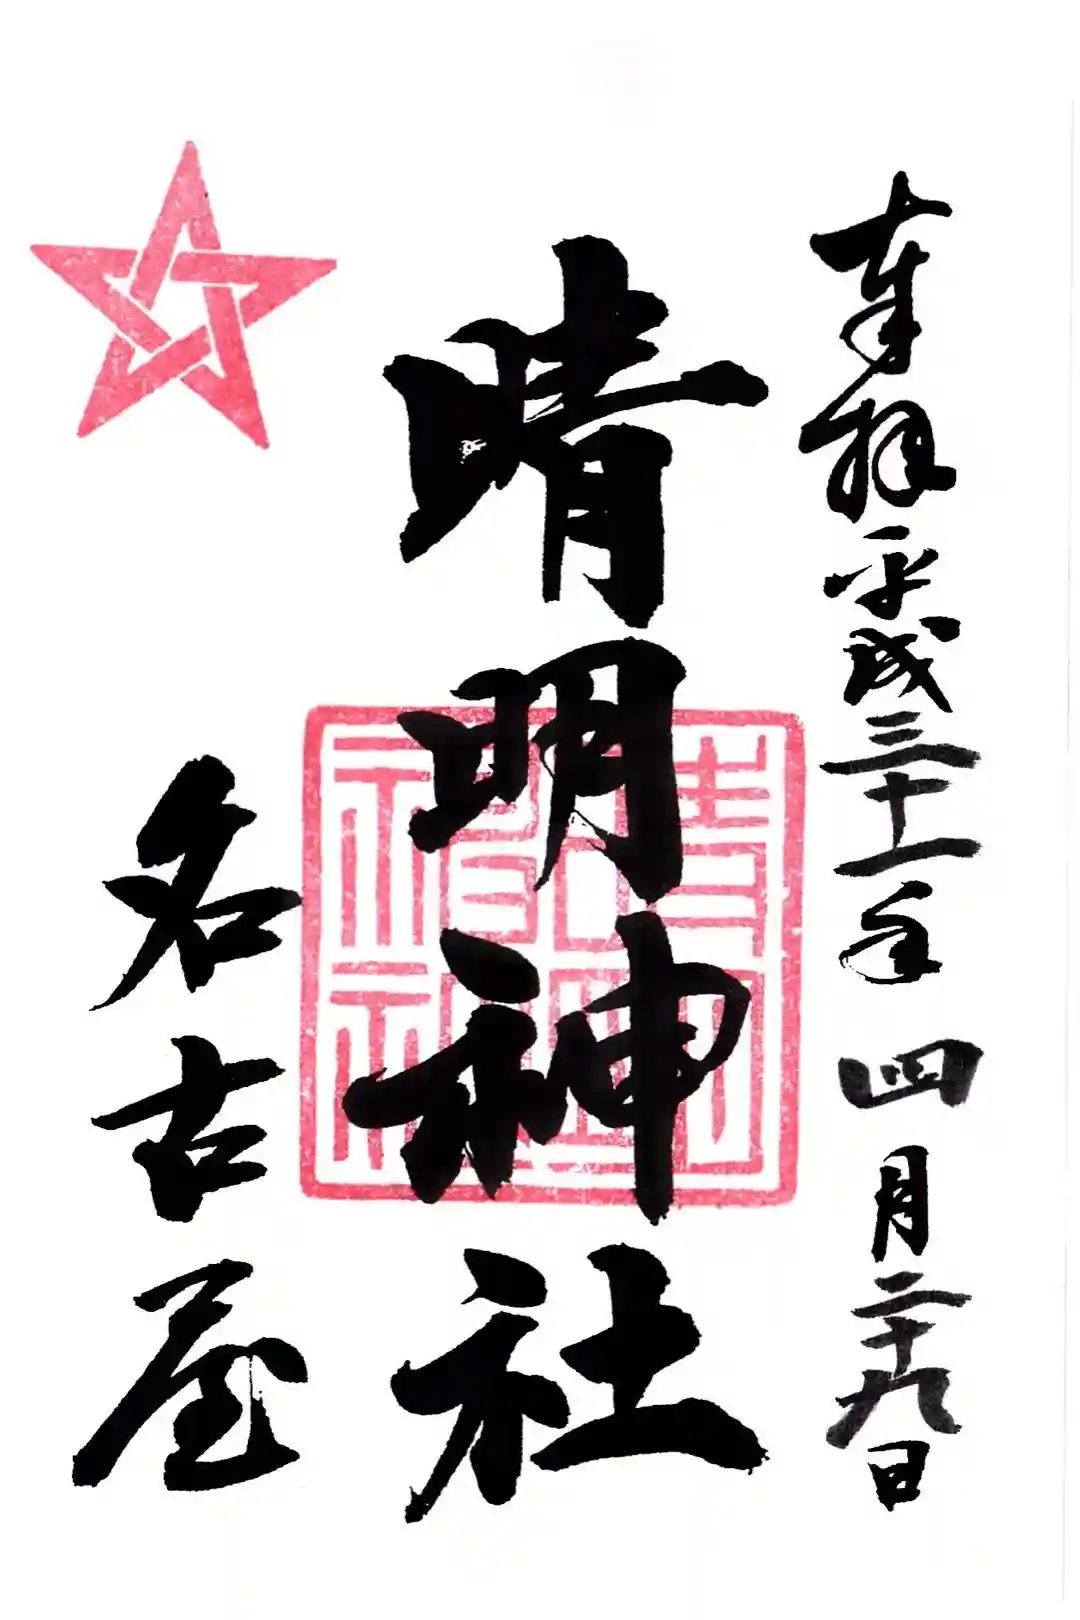 奉拝 平成三十一年 四月二十九日
晴明神社
名古屋